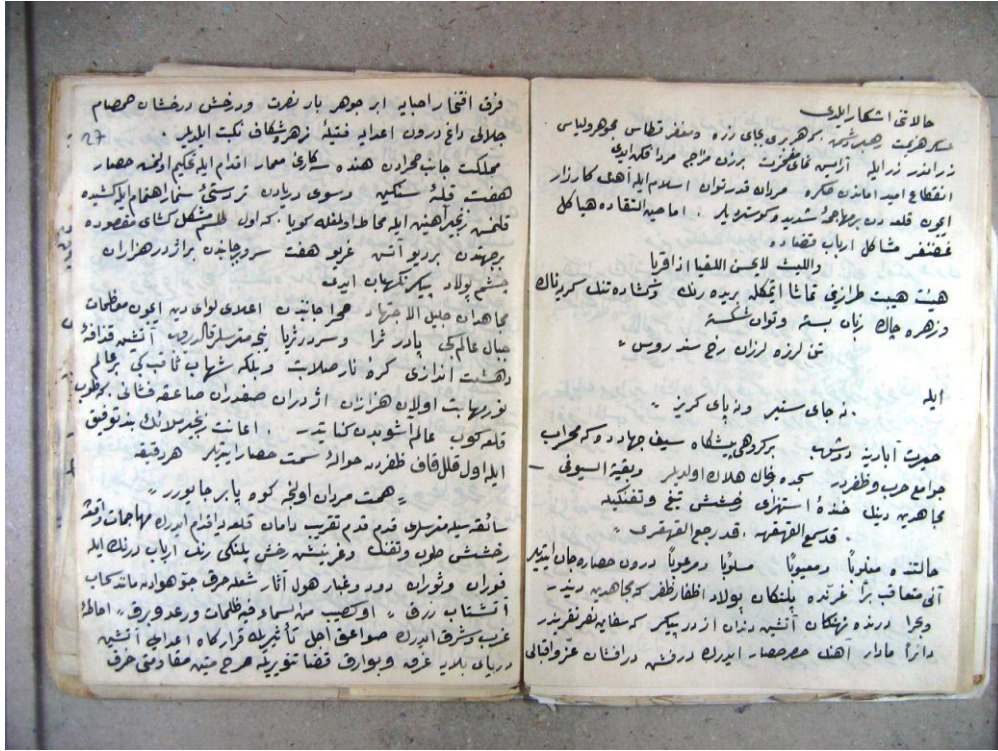 حالاتی اشکار ایلدی
عسکر هزیمت رهبر روس که هر بری بجای زره ومغفر قطاس مجوهر ولباس
زراندر زر ایله آرایش نمای مفخرت برزن مزاجی مردانکه ایدی
انقطاع امید اماندن صکره مردان قدر توان اسلام ایله آهنك کارزار
ایچون قلعه دن برمهاجمهٔ شدید وکوستردیلر . اما حین التقاده هیاکل
غضنفر مشاکل ارباب قضاده
واللیث لا یحسن اللقیا اذا قربا
هیئت هیبت طرازینی تماشا ایتمکله بریده رنك وکشاده تنك سحرناك
وزهره چاك زبان بسته وتوان شکسته
تن لرزه لرزان رخ سندروس
ایله . نه جای ستیز ونه پای کریز
حیرت آبادینه دوشوب برکروهی پیشکاه سیف جهادده که محراب
جوامع حرب وظفردر سجده خاك هلاك اولدیلر وبقیة السیوفی
مجاهدین دینك خندهٔ استهزای وخشش تیغ وتفنکیله
قد سمع القهقهه . قد رجع القهقری
حالتنده مغلوباً ومعیوباً مسلوباً ومرعوباً درون حصاره جان ایتدیلر
آنی متعاقب براً غرنده پلنکان پولاد اظفار ظفر که مجاهدین دیندر
وبحراً درنده نهنکان آتشین دندان اژدر پیکر که سفاین نصر قریندر
دائراً مادار آهنك حصر حصار ایدرك درفش درافشان عز واقبالی
فرق افتخار احبایه ابر جوهر بار نصرت ودرخش درخشان صمصام
27
جلالی داغ درون اعدایه فتیلهٔ زهره شکاف نکبت ایلدیلر .
مملکت جانب صحرادن هنده سکاری معمار اقدام ایله تحکیم اولنمش حصار
هفت قلهٔ سنکین وسوی دریادن تردستی سنمار اهتمام ایله کشیده
قلنمش زنجیر آهنین ایله محاط اولمغله کویا . که اول طلسم مشکل کشای مقصوده
برجهتدن بردیو آتش غریو هفت سر وبرجانبدن بر اژدر هزاران
چشم پولاد پیکر نکهبان ایدی
مجاهدان جلیل الاجتهاد صحرا جانبندن اعلای لوای دین ایچون معظمات
جبال عالم کبی پادر ثرا وسر در ثریا نیجه مترسلر آتشین قذافه
دهشت اندازی کرهٔ نار صلابت وبلکه شهاب ثاقب کبی بر عالم
نور مهابت اولان هزاران اژدران صفدران صاعقه فشانی برطوب
قلعه کوب عالم آشوبدن کنایتدر . اعانت زنجیر بند توفیق
ایله اول قلل قاف ظفرده حوالهٔ سمت حصار ایتدیلر هر دقیقه
همت مردان اولنجه کوه پا بر جا یورر
سائقه سیله مترسلری قدم قدم تقریب دامان قلعه یه اقدام ایدرك مهاجمات
رخشش طوپ وتفنك وغرینش رخش پلنکی رنك ارباب درنك ایله
فوران وثوران دود وغبار هول آثار شعله حرف جو هواده مانند سحاب
آتشتاب زرق او کصیب من السماء فیه ظلمات ورعد وبرق احاطهٔ
غرب وشرق ایدرك صواعق اجل تأثیریله قرارکاه اعدایی آتشین
دریای بلایه غرق وبوارق قضا تنویریله